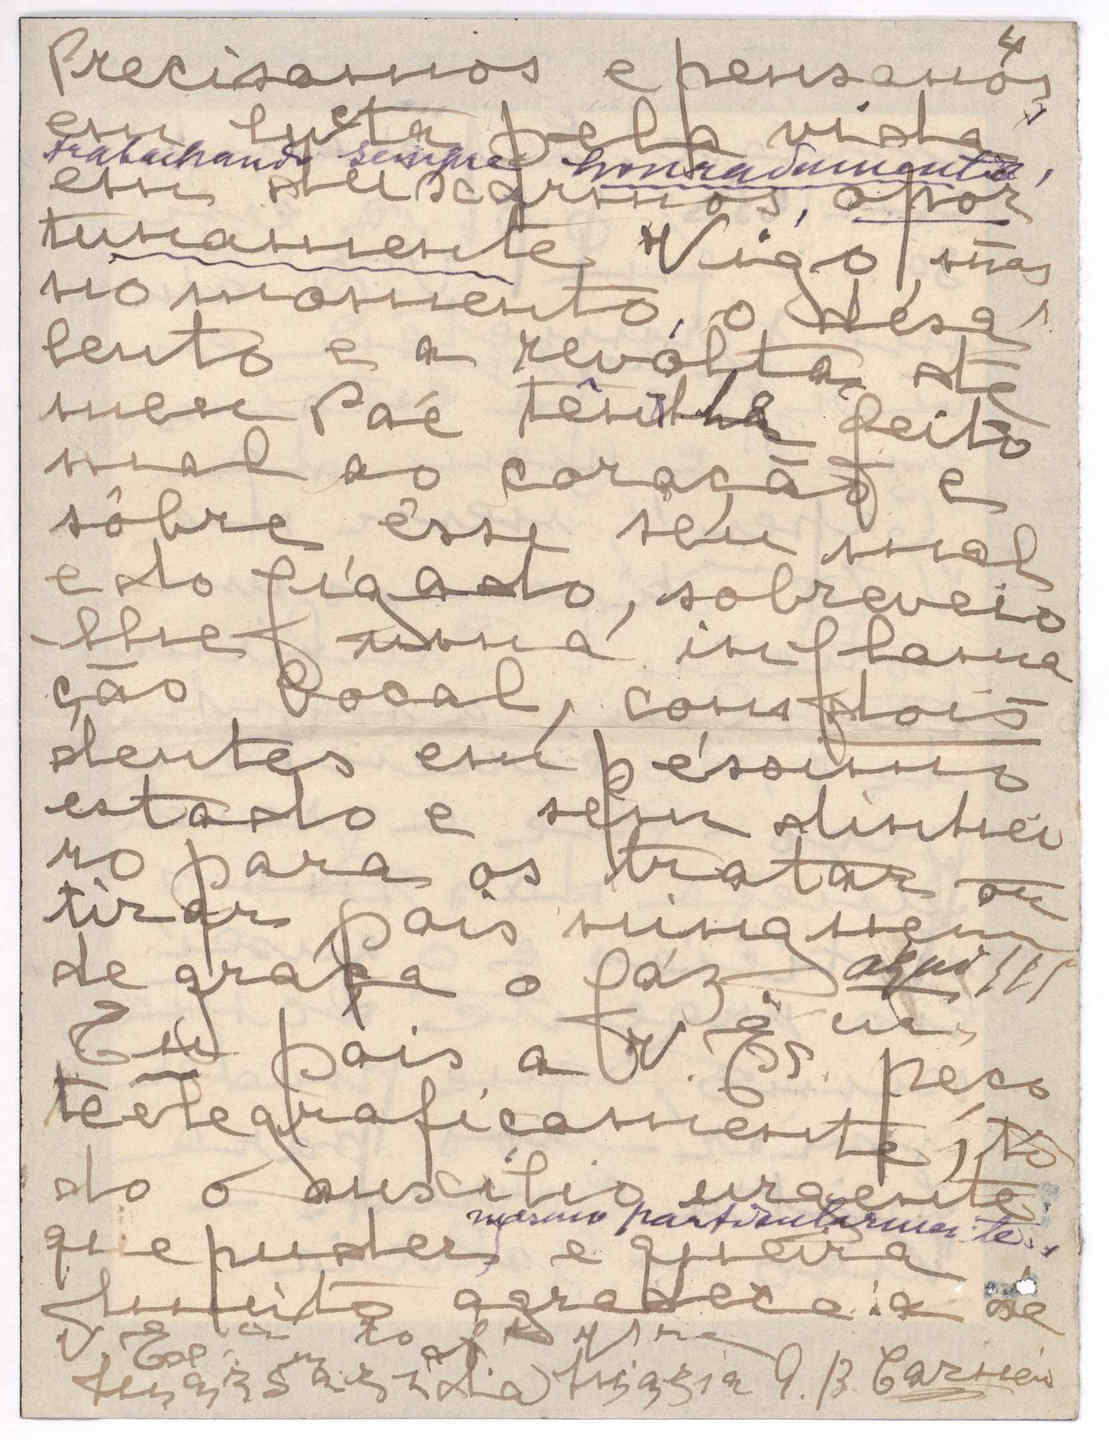 4
Precisamos e pensamos
em lucta pela vida,
trabalhando sempre honradamente,
em buscarmos, opor
tunamente Vigo, mas
no momento, o désa
lento e a revólta de
meu Paé têm lhe feito
mal ao coração e
sôbre ésse séu mal
e do fígado, sobreveio
-lhe uma inflama
ção bocal, com dois
dentes em péssimo
estado e sem dinhei
ro para os tratar ou
tirar, pois ninguem
de graça o fáz aqui!!!
Eu pois a V. Ex.ª peço
teelegraficamente, to
do o auxílio urgente
mesmo particularmente,
que puder, e queira
Muito agradecida de
V. Ex.ª
Maria G. B. Carneiro